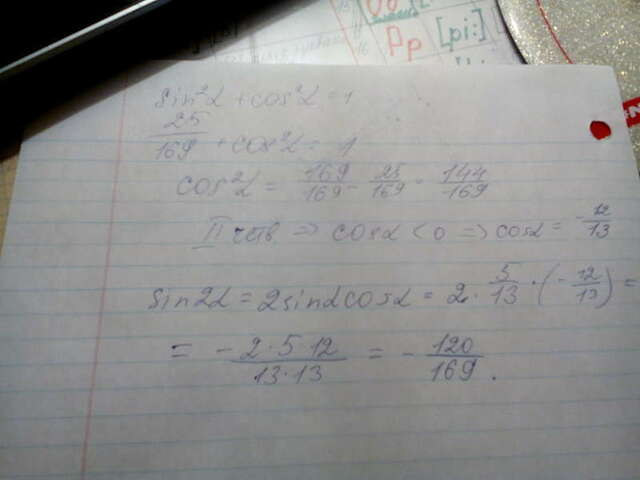 Pp [pi:]
sin²α + cos²α = 1
25/169 + cos²α = 1
cos²α = 169/169 - 25/169 = 144/169
II четв. ⇒ cosα < 0 ⇒ cosα = -12/13
sin2α = 2sinαcosα = 2 · 5/13 · (-12/13) =
= - 2·5·12/13·13 = - 120/169.